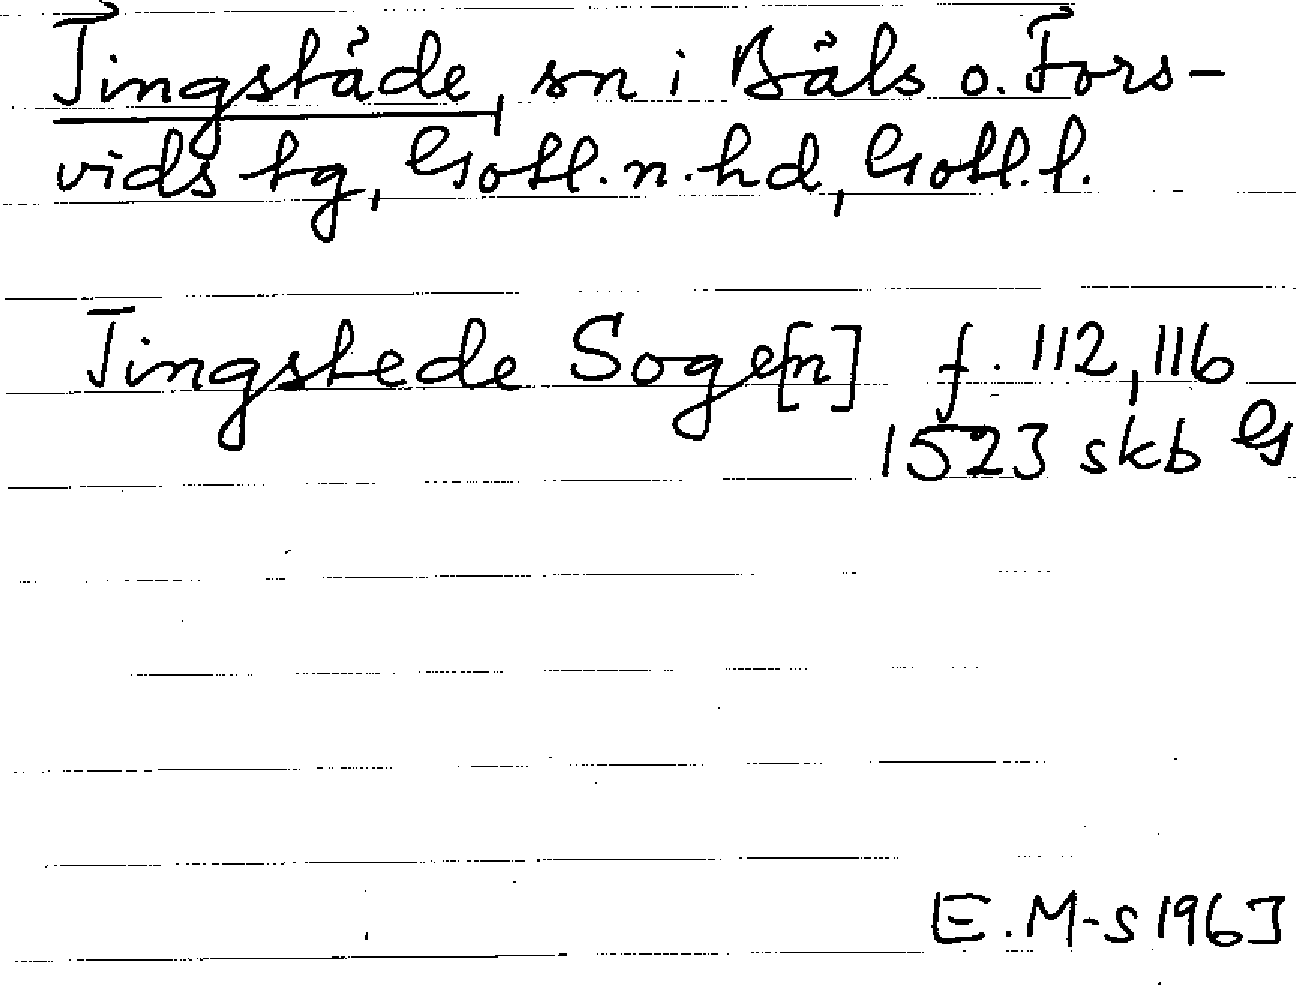 Tingstäde, sn i Bäls o. Fors-
vids tg, Gotl. n. hd, Gotl. l.
Tingstede Soge[n] f. 112, 116
1523 skb G
E. M-s 1963